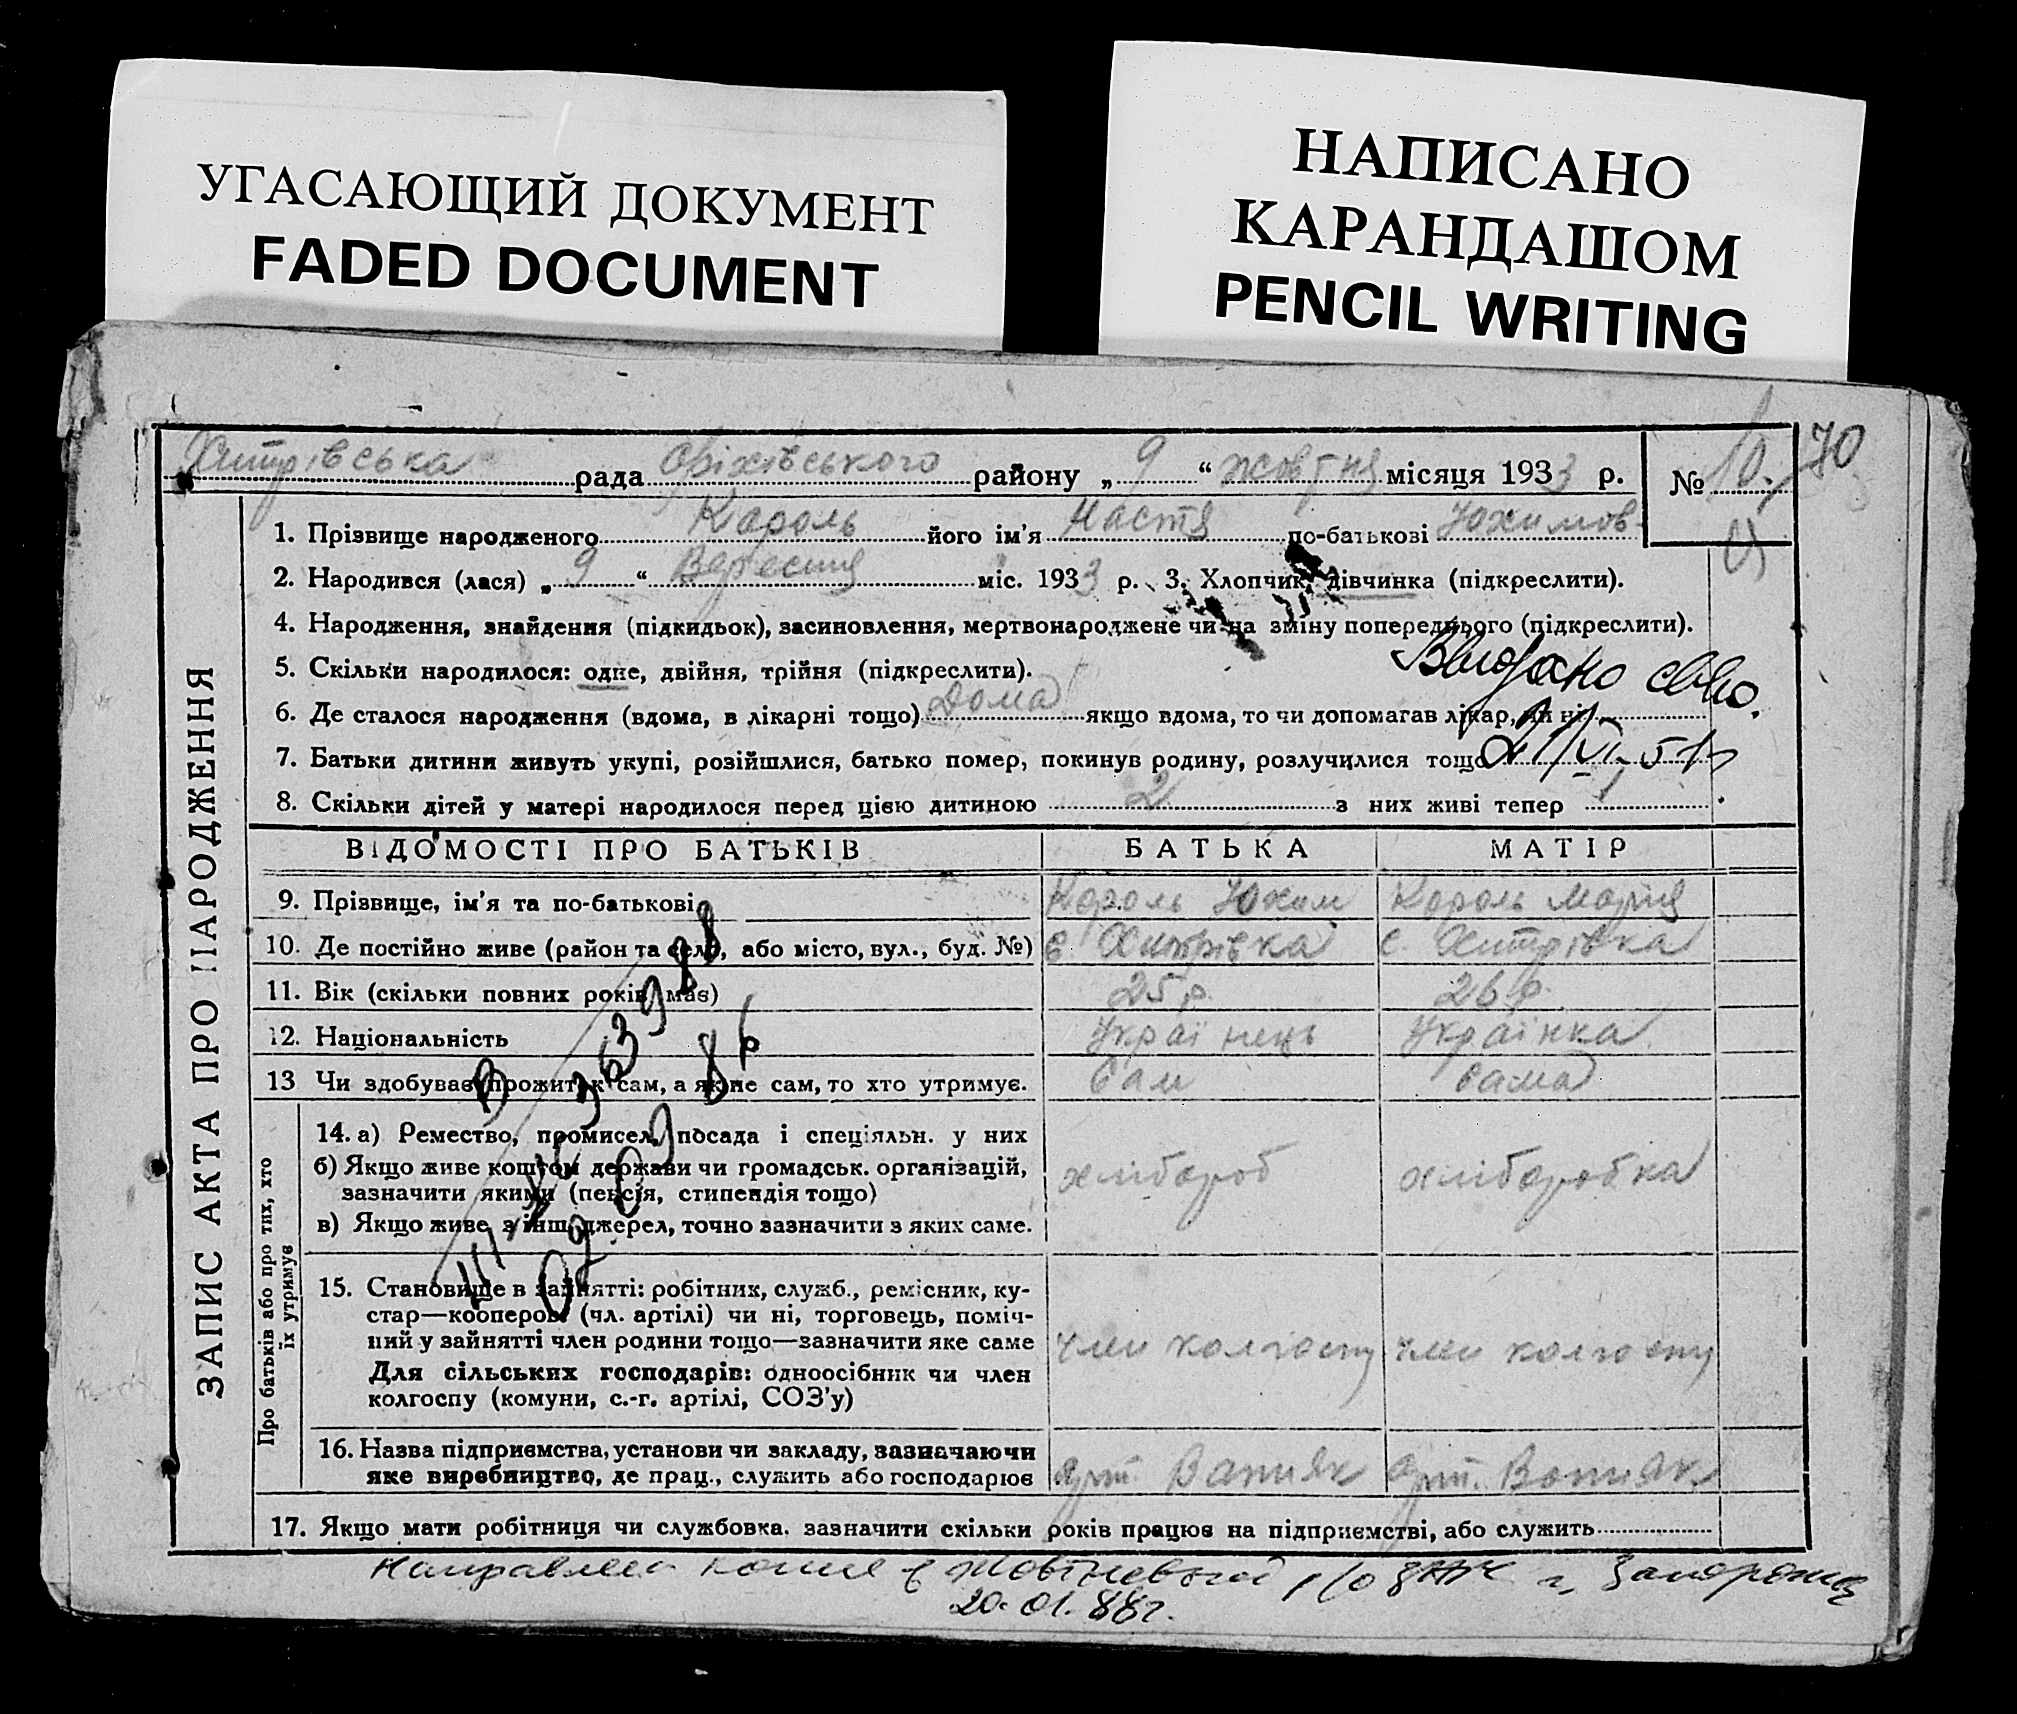 УГАСАЮЩИЙ ДОКУМЕНТ
FADED DOCUMENT
НАПИСАНО
КАРАНДАШОМ
PENCIL WRITING
Хитрівська рада Оріхівського району „ 9 “ жовтня місяця 1933 р. № 10. 70
ЗАПИС АКТА ПРО НАРОДЖЕННЯ
1. Прізвище народженого Король його ім'я Настя по-батькові Юхимов-
2. Народився (лася) „ 9 “ Вересня міс. 1933 р. 3. Хлопчик, дівчинка (підкреслити).
4. Народження, знайдення (підкидьок), засиновлення, мертвонароджене чи на зміну попереднього (підкреслити).
5. Скільки народилося: одне, двійня, трійня (підкреслити).
Выдано св-во.
6. Де сталося народження (вдома, в лікарні тощо) Дома якщо вдома, то чи допомагав лікар, чи ні
7. Батьки дитини живуть укупі, розійшлися, батько помер, покинув родину, розлучилися тощо
8. Скільки дітей у матері народилося перед цією дитиною 2 з них живі тепер 1
ВІДОМОСТІ ПРО БАТЬКІВ БАТЬКА МАТІР
9. Прізвище, ім'я та по-батькові Король Юхим Король Мария
10. Де постійно живе (район та село, або місто, вул., буд. №) с Хитрівка с Хитрівка
11. Вік (скільки повних років має) 25 р. 26 р.
12. Національність Українець Українка
13 Чи здобуває прожиток сам, а як не сам, то хто утримує. Сам сама
Про батьків або про тих, хто
їх утримує
14. а) Ремество, промисел, посада і спеціяльн. у них
б) Якщо живе коштом держави чи громадськ. організацій,
зазначити якими (пенсія, стипендія тощо) хлібороб хлібаробка
в) Якщо живе з інш. джерел, точно зазначити з яких саме.
15. Становище в зайнятті: робітник, служб., ремісник, ку-
стар—коопером (чл. артілі) чи ні, торговець, поміч-
ний у зайнятті член родини тощо—зазначити яке саме член колгоспу член колгоспу
Для сільських господарів: одноосібник чи член
колгоспу (комуни, с.-г. артілі, СОЗ'у)
16. Назва підприємства, установи чи закладу, зазначаючи
яке виробництво, де прац., служить або господарює арт. арт.
17. Якщо мати робітниця чи службовка, зазначити скільки років працює на підприємстві, або служить
363988
02 09 86
Направлен копия в Жовтневый р/о ЗАГС г. Запорожье
20.01.88г.